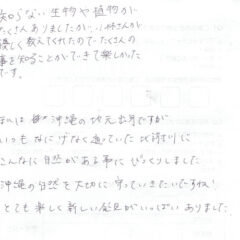 知らない生物や植物が
たくさんありましたが、小林さんが
優しく教えてくれたのでたくさんの
事を知ることができて楽しかった
です。
沖縄の地元出身ですが
いつもなにげなく通っていた比謝川に
こんなに自然がある事にびっくりしました
沖縄の自然を大切に守っていきたいですね!
とても楽しく新しい発見がいっぱいありました。